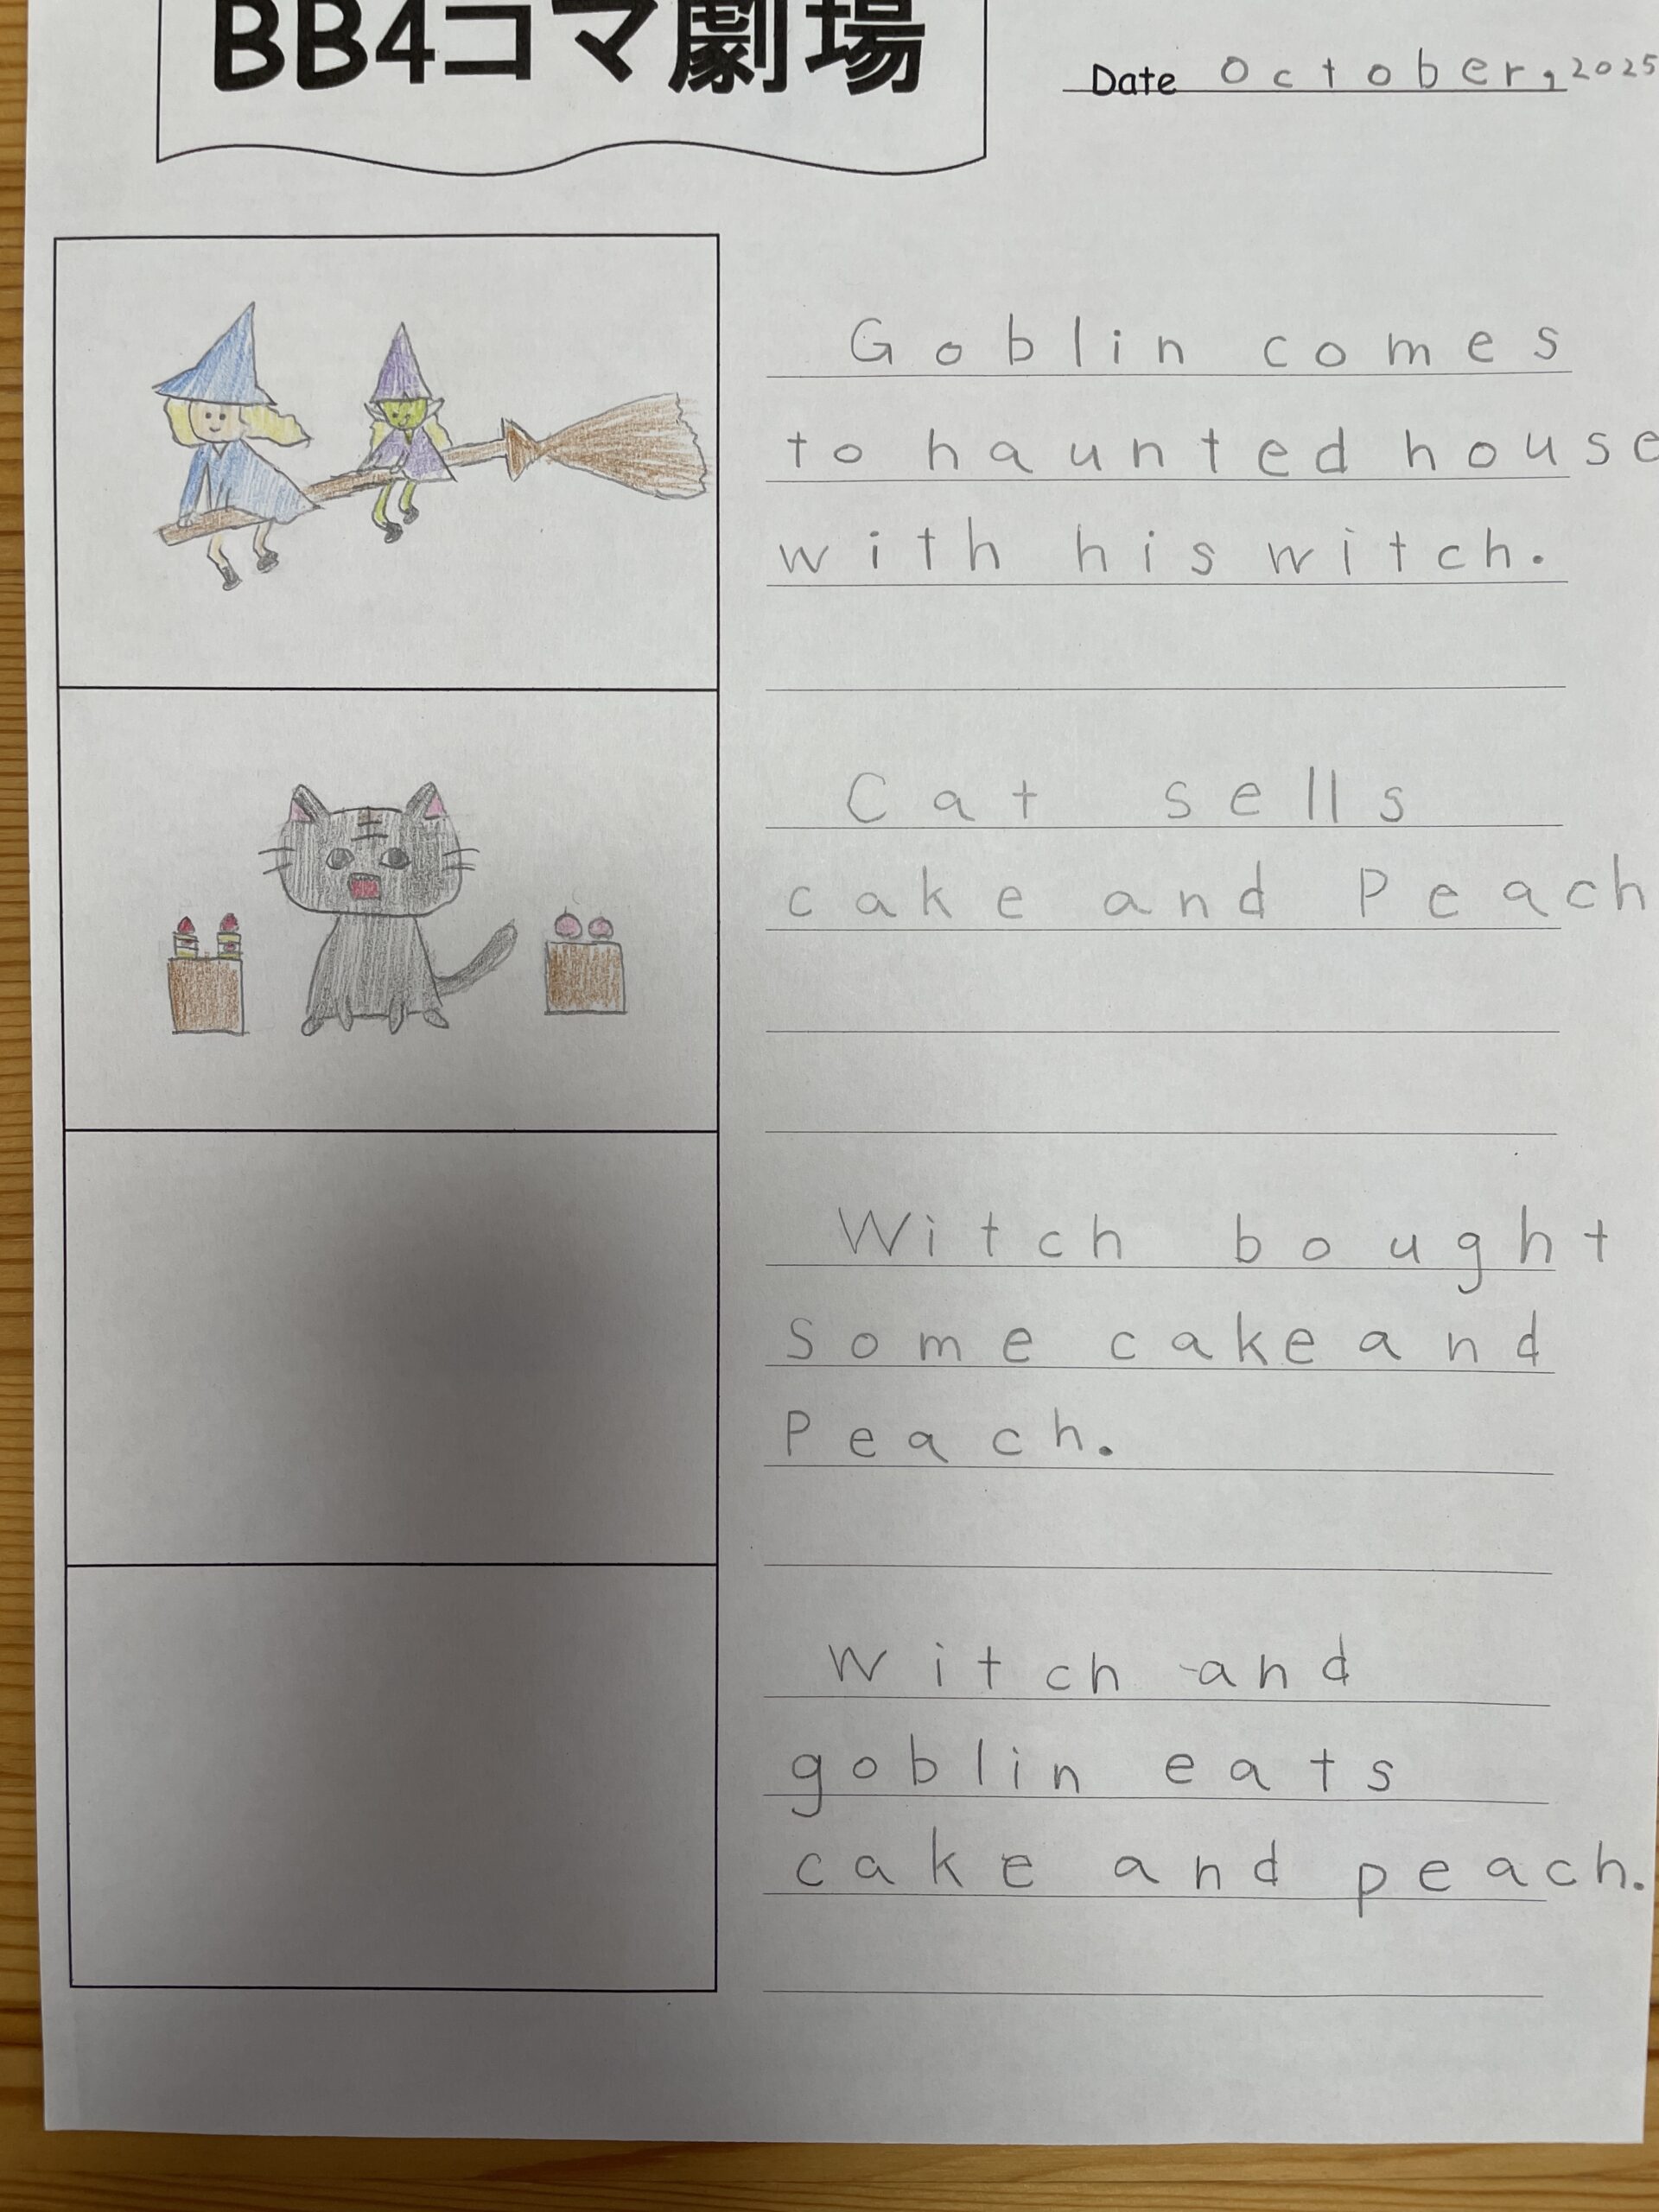 BB4コマ劇場
Date October, 2025
Goblin comes
to haunted house
with his witch.
Cat sells
cake and Peach
Witch bought
Some cake and
Peach.
Witch and
goblin eats
cake and peach.